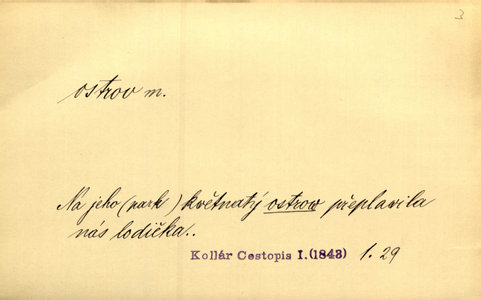 3
ostrov m.
Na jeho (park) květnatý ostrow přeplavila
nás lodička..
Kollár Cestopis I. (1843) 1.29